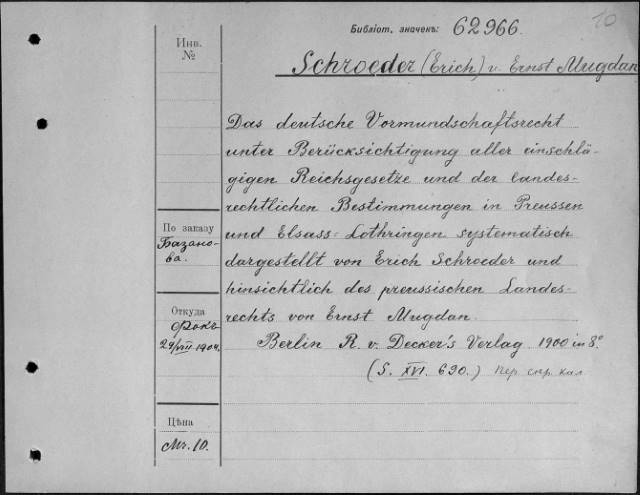 Библіот. значекъ: 62966.
10
Инв.
№
Schroeder (Erich) u. Ernst Mugdan
Das deutsche Vormundschaftsrecht
unter Berücksichtigung aller einschlä-
gigen Reichsgesetze und der landes-
rechtlichen Bestimmungen in Preussen
und Elsass-Lothringen systematisch
dargestellt von Erich Schroeder und
hinsichtlich des preussischen Landes-
rechts von Ernst Mugdan.
Berlin R. v. Decker's Verlag 1900 in 8°
(S. XVI. 690.)
По заказу
Базано-
ва.
Откуда
Фокъ
29/VIII 1904.
Цѣна
Mr. 10.